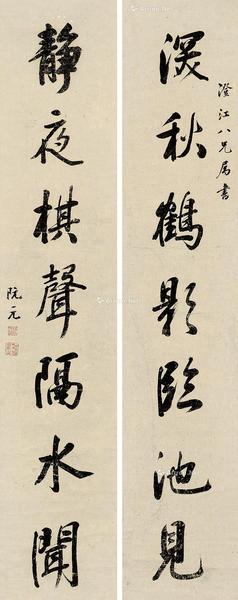 澄江八兄属書
深秋鶴影臨池見
靜夜棋聲隔水聞
阮元